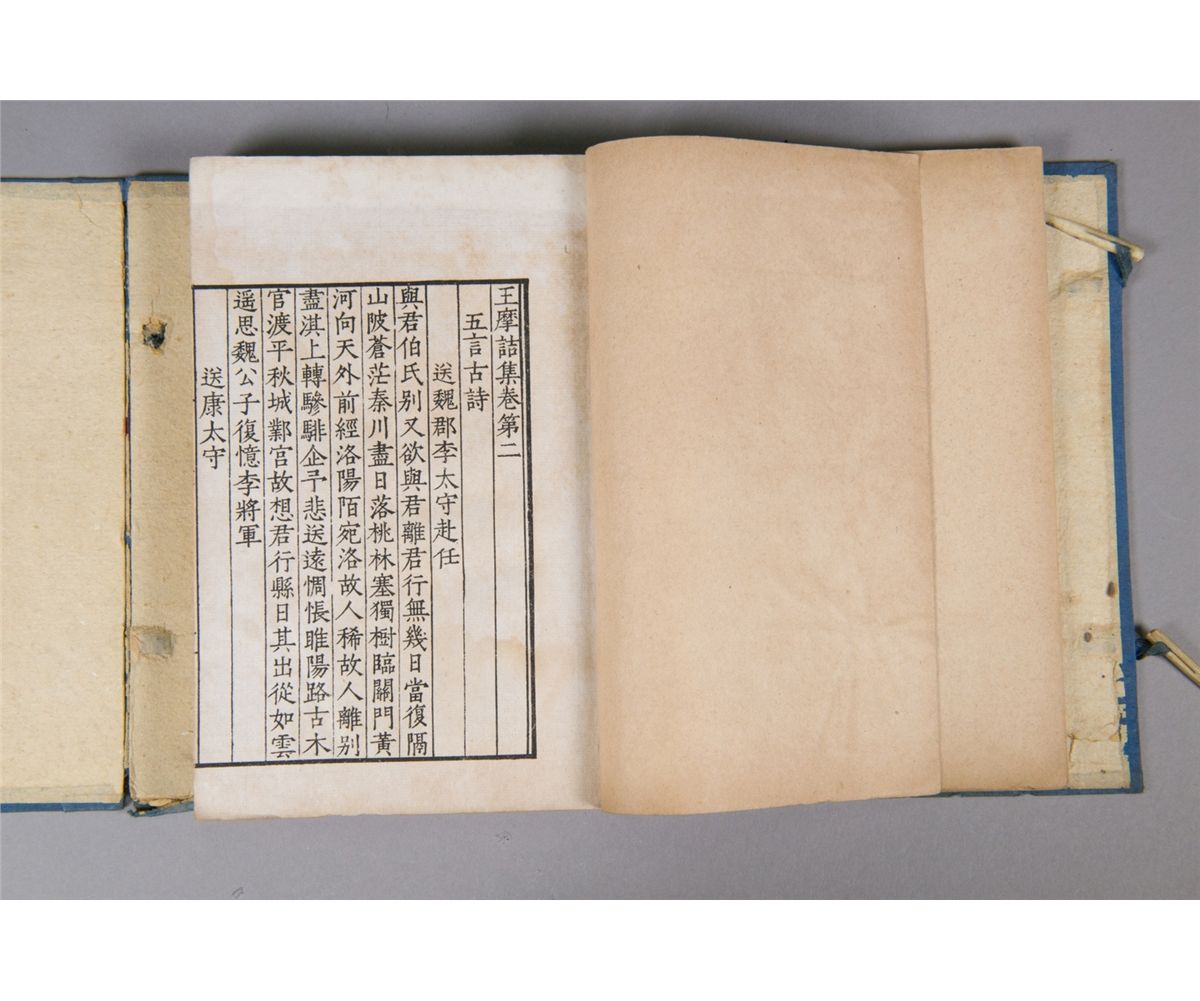 王摩詰集卷第二
五言古詩
送魏郡李太守赴任
與君伯氏別又欲與君離君行無幾日當復隔
山陂蒼茫秦川盡日落桃林塞獨樹臨關門黃
河向天外前經洛陽陌宛洛故人稀故人離別
盡淇上轉驂騑企予悲送遠惆悵睢陽路古木
官渡平秋城鄴宮故想君行縣日其出從如雲
遥思魏公子復憶李將軍
送康太守